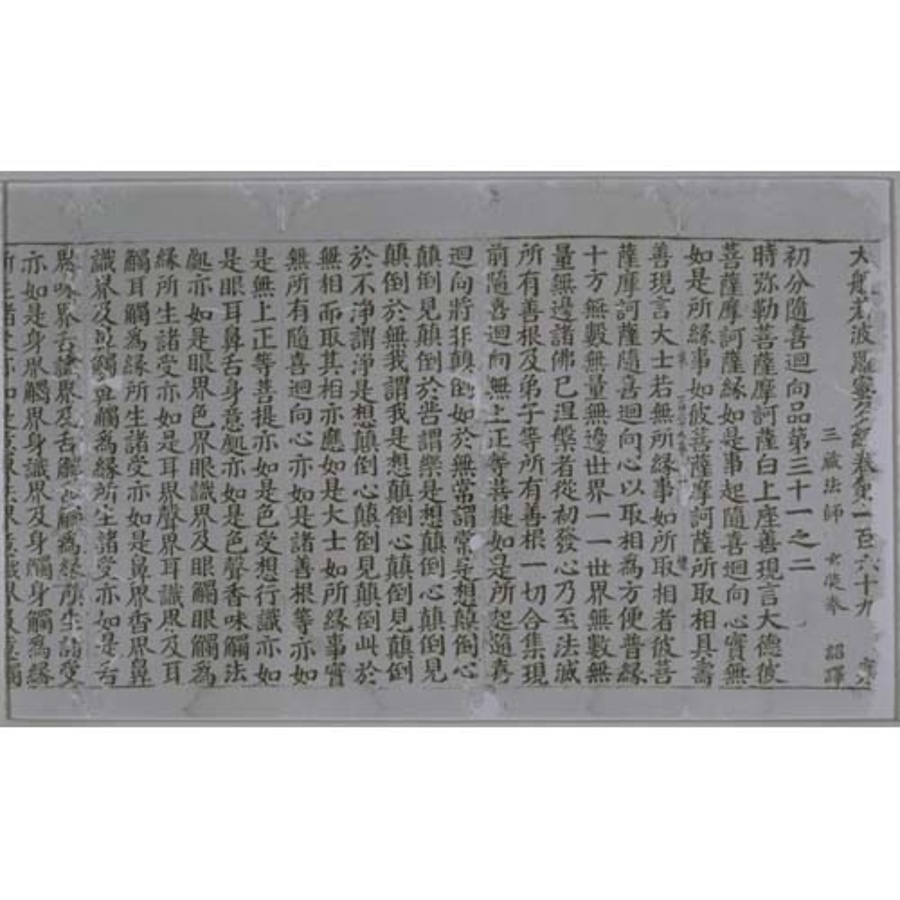 大般若波羅蜜多經卷第一百六十九
三藏法師 玄奘奉 詔譯
初分隨喜迴向品第三十一之二
時弥勒菩薩摩訶薩白上座善現言大德彼
菩薩摩訶薩緣如是事起隨喜迴向心實無
如是所緣事如彼菩薩摩訶薩所取相具壽
善現言大士若無所緣事如所取相者彼菩
薩摩訶薩隨喜迴向心以取相為方便普緣
十方無數無量無邊世界一一世界無數無
量無邊諸佛已涅槃者從初發心乃至法滅
所有善根及弟子等所有善根一切合集現
前隨喜迴向無上正等菩提如是所起隨喜
迴向將非顛倒如於無常謂常是想顛倒心
顛倒見顛倒於苦謂樂是想顛倒心顛倒見
顛倒於無我謂我是想顛倒心顛倒見顛倒
於不淨謂淨是想顛倒心顛倒見顛倒此於
無相而取其相亦應如是大士如所緣事實
無所有隨喜迴向心亦如是諸善根等亦如
是無上正等菩提亦如是色受想行識亦如
是眼耳鼻舌身意處亦如是色聲香味觸法
處亦如是眼界色界眼識界及眼觸眼觸為
緣所生諸受亦如是耳界聲界耳識界及耳
觸耳觸為緣所生諸受亦如是鼻界香界鼻
識界及鼻觸鼻觸為緣所生諸受亦如是舌
界味界舌識界及舌觸舌觸為緣所生諸受
亦如是身界觸界身識界及身觸身觸為緣